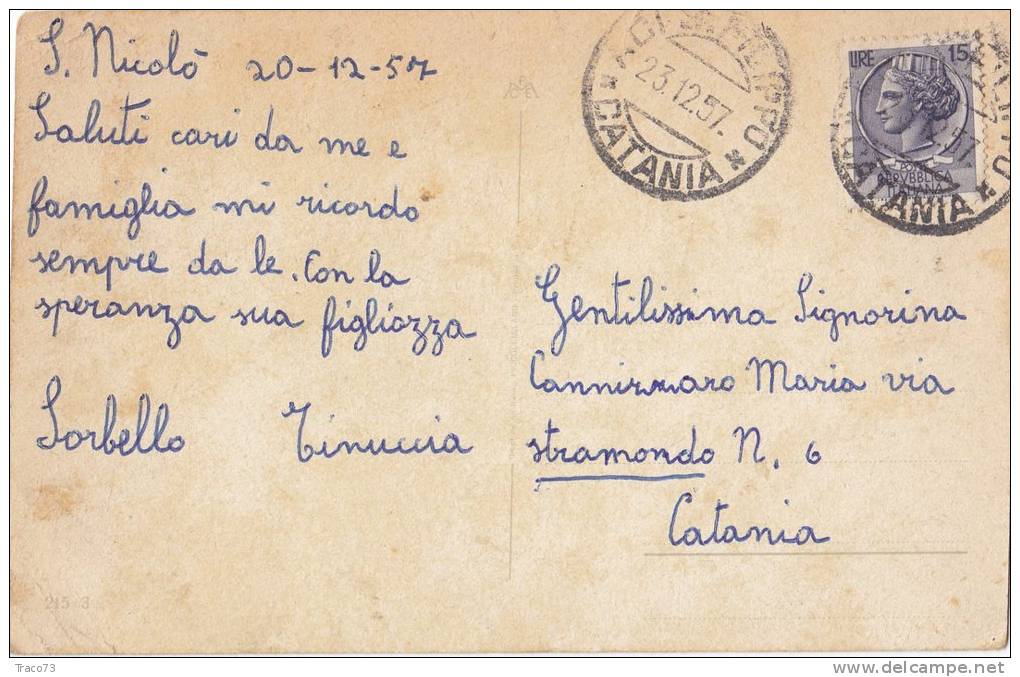 S. Nicolò 20-12-57
Saluti cari da me e
famiglia mi ricordo
sempre da le. Con la
speranza sua figliozza
Sorbello Tinuccia
ACI S. FILIPPO
23.12.57.
* CATANIA *
LIRE 15
REPVBBLICA
ITALIANA
CATANIA *
Gentilissima Signorina
Cannizzaro Maria via
stramondo N. 6
Catania
215-3
Traco73
delcampe.net